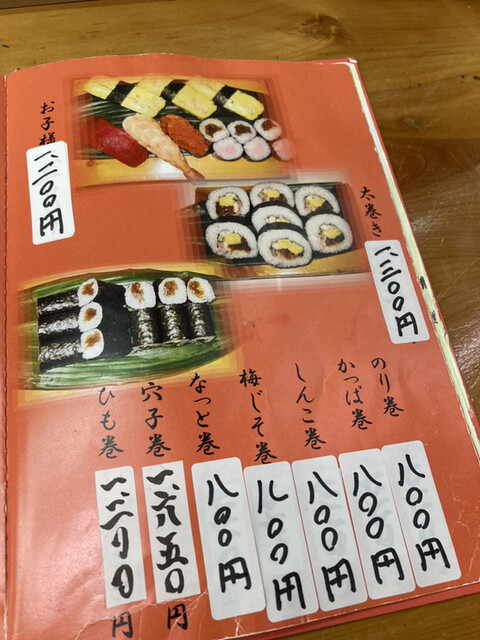 お子様
一、二〇〇円
太巻き
一、三〇〇円
のり巻
八〇〇円
かっぱ巻
八〇〇円
しんこ巻
八〇〇円
梅じそ巻
八〇〇円
なっと巻
八〇〇円
穴子巻
一、六五〇円
ひも巻